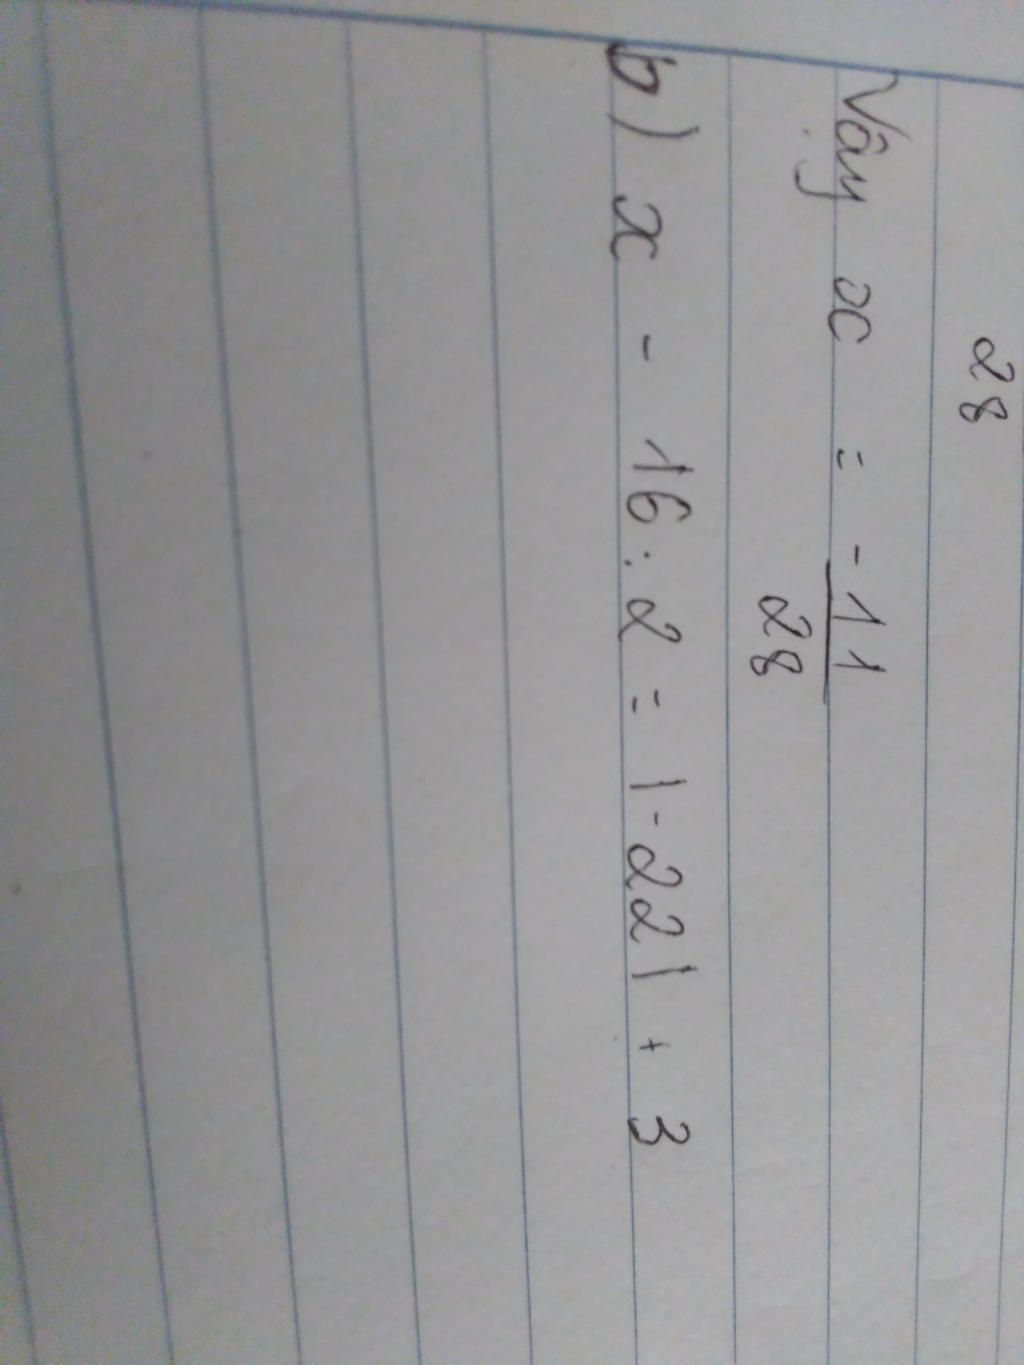 28
Vậy x = -11
28
b) x - 16 : 2 = |-22| + 3